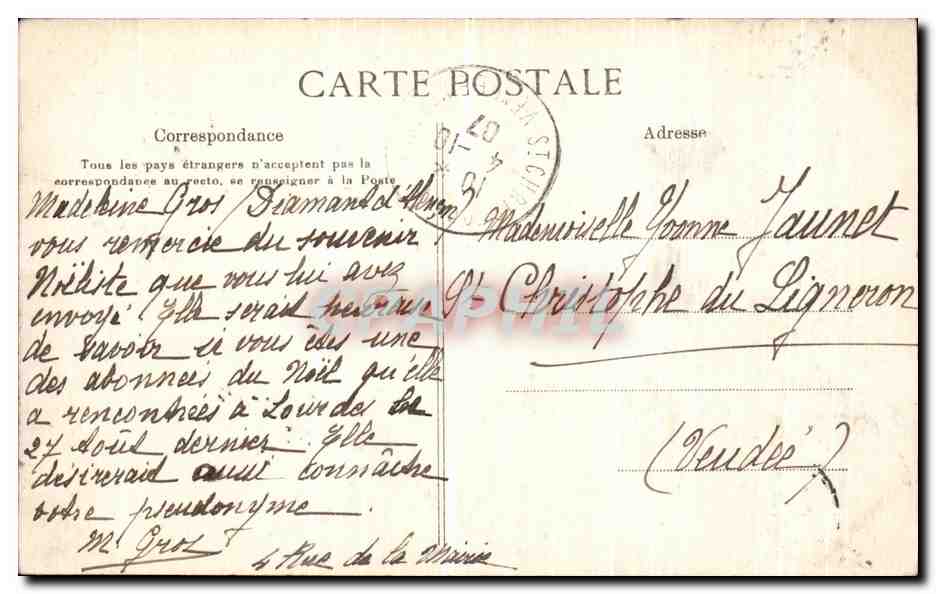 CARTE POSTALE
Correspondance
Tous les pays étrangers n'acceptent pas la
correspondance au recto, se renseigner à la Poste
Madeleine Gros (Diamant d'
vous remercie du souvenir
Noëliste que vous lui avez
envoyé Elle serait heureuse
de savoir si vous êtes une
des abonnées du Noël qu'elle
a rencontrées à Lourdes le
27 Août dernier. Elle
désirerait aussi connaître
votre pseudonyme.
M Gros
4 Rue de la Mairie
Adresse
Mademoiselle Yvonne Jaunet
St Christophe du Ligneron
(Vendée)
ST CHR
10
4 -10
07